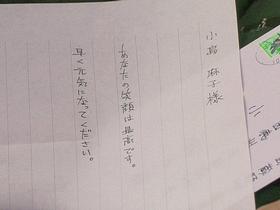 小島 麻子様
あなたの笑顔は最高です。
早く元気になってください。